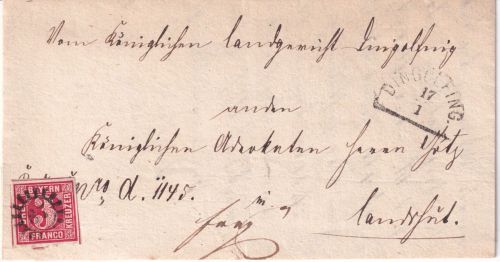 Vom Königlichen Landgericht Dingolfing
DINGOLFING
17
1
an den
Königlichen Advokaten Herrn Götz
No d. 1145.
in
Landshut.
BAYERN
3
KREUZER
FRANCO